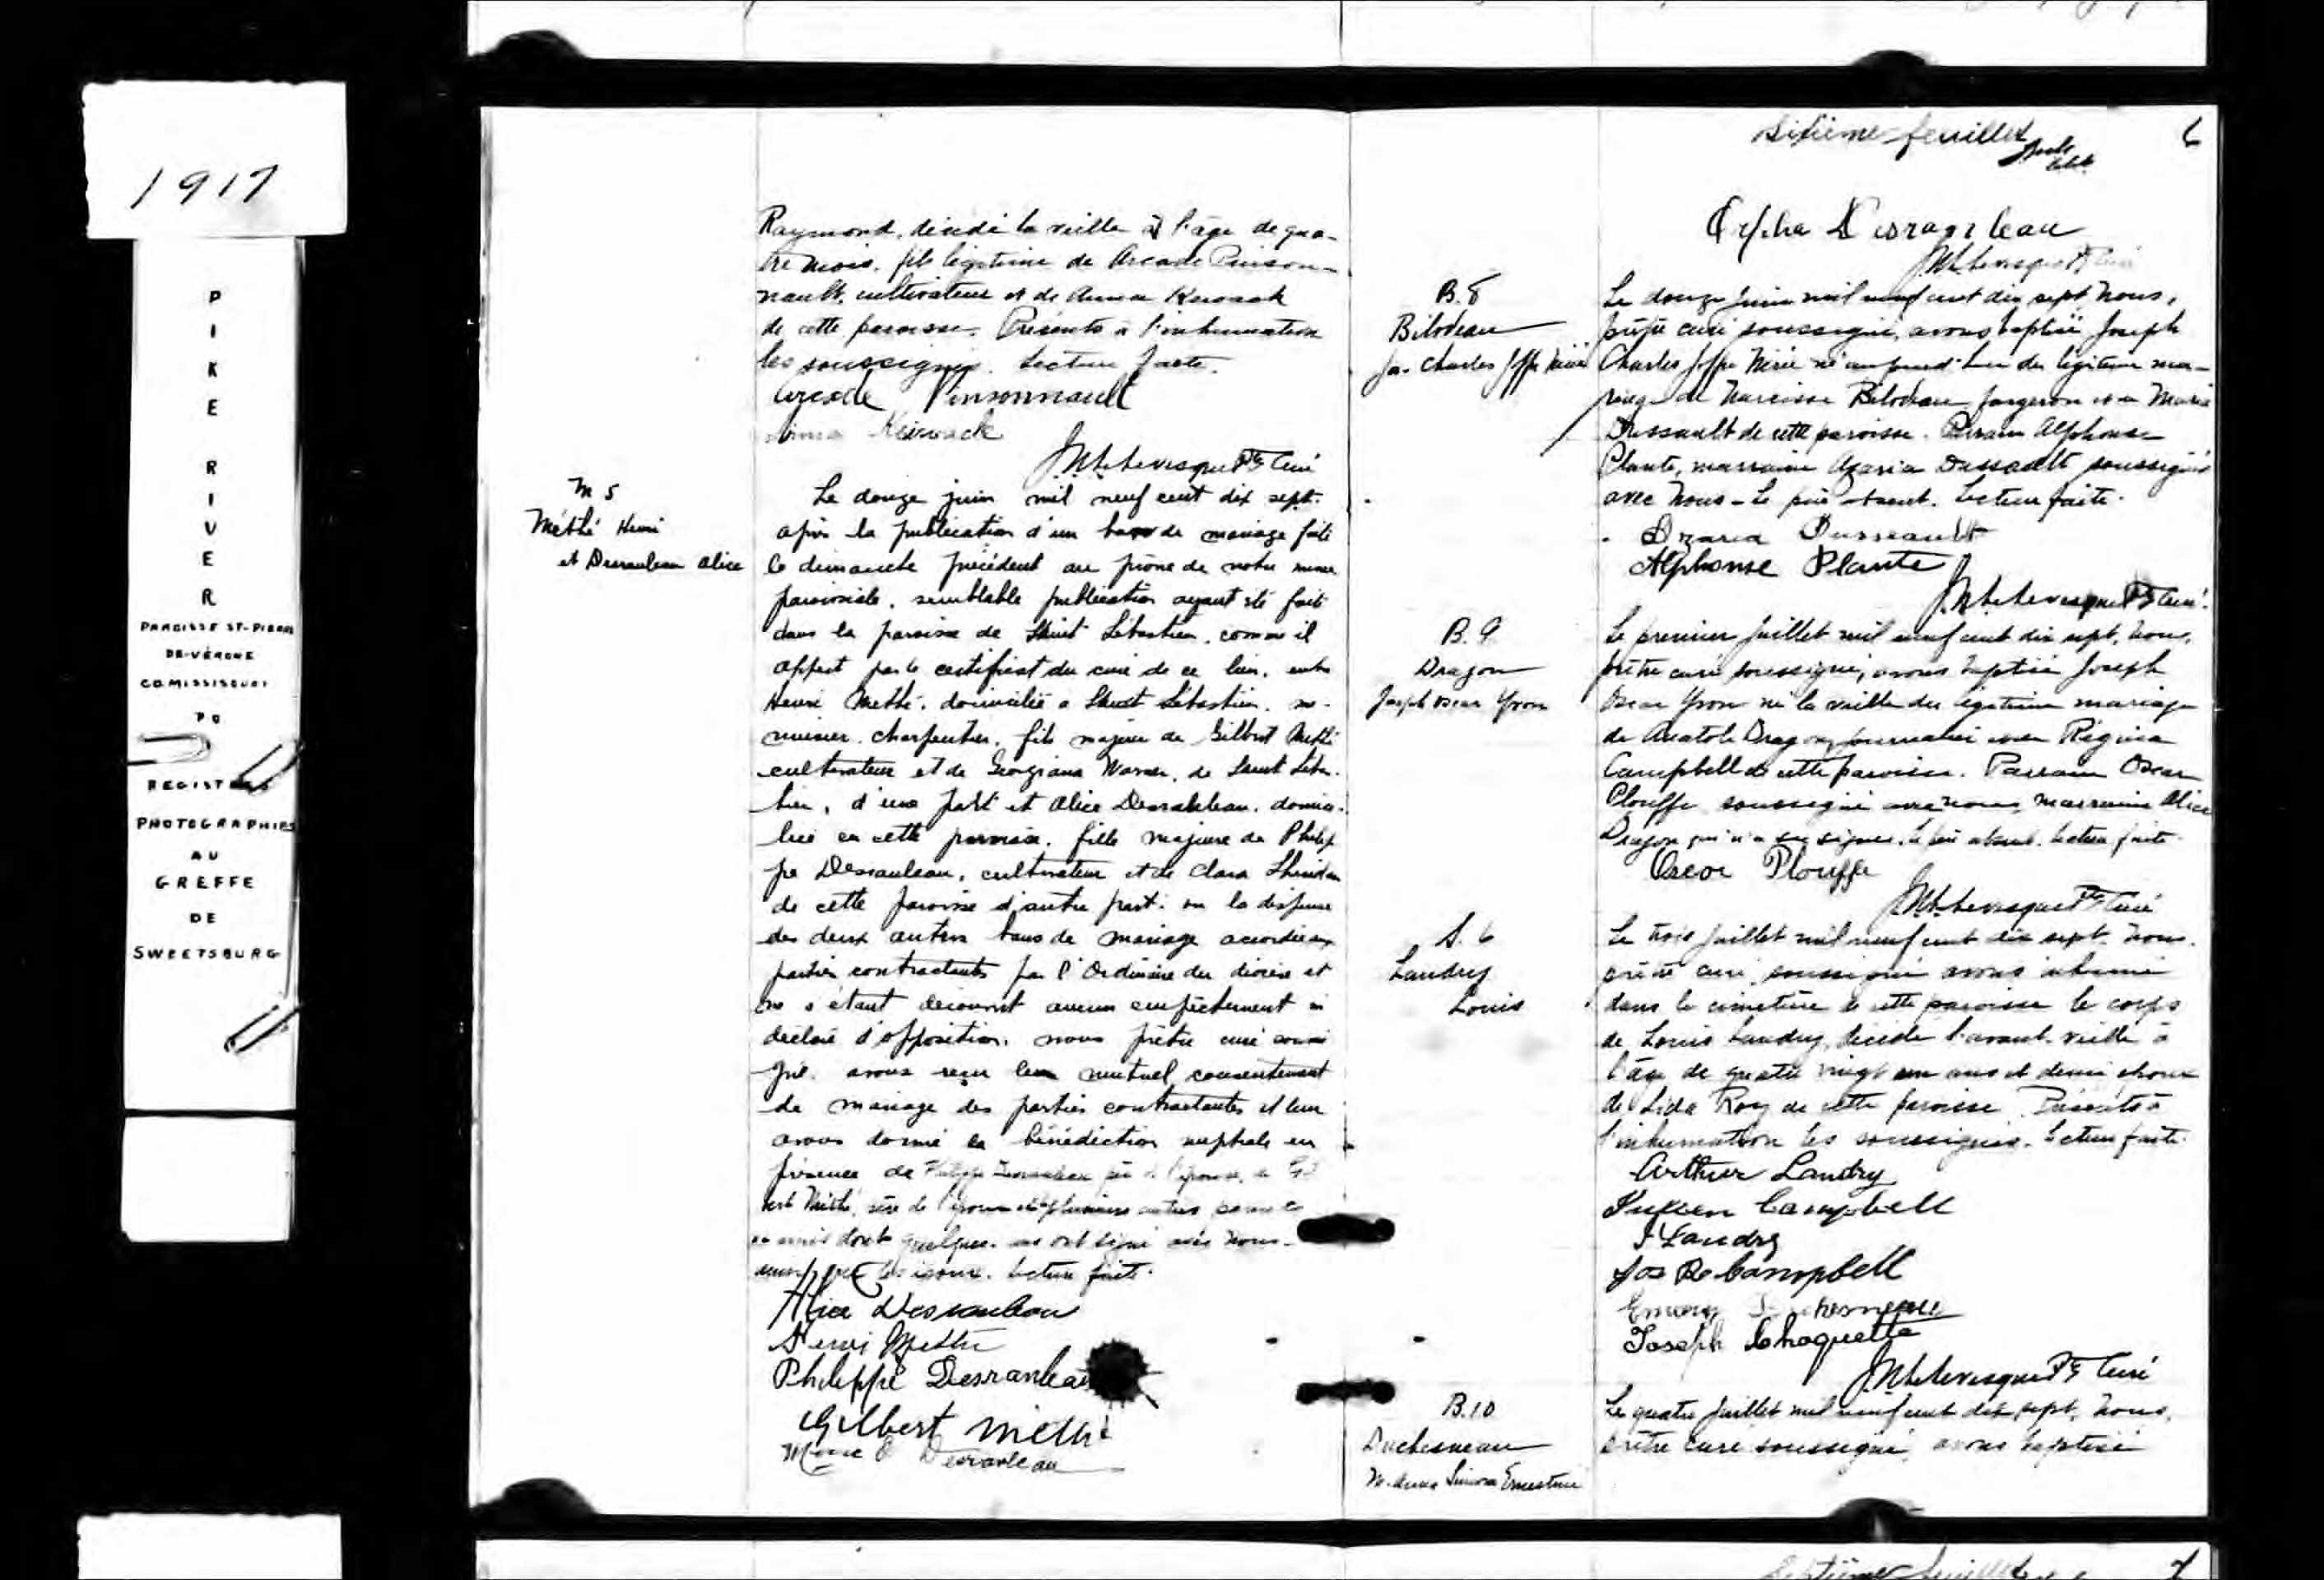 1917
P
I
K
E
R
I
V
E
R
PAROISSE ST-PIERRE
DE-VÉRONE
CO MISSISQUOI
PQ
REGISTRES
PHOTOGRAPHIES
AU
GREFFE
DE
SWEETSBURG
Raymond, décédé la veille à l'âge de qua-
tre mois, fils légitime de Arcade Pinson-
nault, cultivateur et de Anna Kerouack
de cette paroisse. Présents à l'inhumation
les soussignés. Lecture faite.
Arcade Pinsonnault
Kerouack
Ptre Curé
M 5
Méthé Henri
et Desranleau Alice
Le douze juin mil neuf cent dix sept.
après la publication d'un ban de mariage faite
le dimanche précédent au prône de notre messe
paroissiale, semblable publication ayant été faite
dans la paroisse de Saint Sébastien, comme il
appert par le certificat du curé de ce lieu, entre
Henri Méthé, domicilié à Saint Sébastien, me-
nuisier charpentier, fils majeur de Gilbert Méthé
cultivateur et de Georgiana Warner, de Saint Sébas-
tien, d'une part et Alice Desranleau, domici-
liée en cette paroisse, fille majeure de Philip
pe Desranleau, cultivateur et de Clara Sheridan
de cette paroisse d'autre part: vu la dispense
des deux autres bans de mariage accordée aux
parties contractantes par l'Ordinaire du diocèse et
ne s'étant découvert aucun empêchement ni
déclaré d'opposition, nous prêtre curé soussi
gné, avons reçu leur mutuel consentement
de mariage des parties contractantes et leur
avons donné la bénédiction nuptiale en
présence de Philippe Desranleau père de l'épouse, de Gil
bert Méthé, père de l'époux et plusieurs autres parents
et amis dont quelques uns ont signé avec nous
ainsi que les époux. Lecture faite.
Alice Desranleau
Henri Methé
Philippe Desranleau
Gilbert Méthé
Marie O Desranleau
Sixième feuillet 6
Orpha Desranleau
Ptre Curé
B. 8
Bilodeau
Jos. Charles Joffre Nérée
Le douze juin mil neuf cent dix sept, nous,
prêtre curé soussigné, avons baptisé Joseph
Charles Joffre Nérée né aujourd'hui du légitime ma-
riage de Narcisse Bilodeau forgeron et de Maria
Dussault de cette paroisse. Parrain Alphonse
Plante, marraine Azaria Dussault soussignés
avec nous. Le père absent. Lecture faite.
Azaria Dusseault
Alphonse Plante
Ptre Curé.
B. 9
Dragon
Joseph Oscar Yvon
Le premier juillet mil neuf cent dix sept, nous,
prêtre curé soussigné, avons baptisé Joseph
Oscar Yvon né la veille du légitime mariage
de Anatole Dragon, journalier et de Régina
Campbell de cette paroisse. Parrain Oscar
Plouffe soussigné avec nous, marraine Alice
Dragon qui n'a su signer. Le père absent. Lecture faite.
Oscar Plouffe
Ptre Curé
S. 6
Landry
Louis
Le trois juillet mil neuf cent dix sept, nous,
prêtre curé soussigné avons inhumé
dans le cimetière de cette paroisse le corps
de Louis Landry, décédé l'avant-veille à
l'âge de quatre vingt un ans et demi époux
de Lida Roy de cette paroisse. Présents à
l'inhumation les soussignés. Lecture faite.
Arthur Landry
Campbell
Landry
Campbell
Emery Duchesneau
Joseph Choquette
Ptre Curé
B. 10
Duchesneau
M. Anna Simone Ernestine
Le quatre juillet mil neuf cent dix sept, nous,
prêtre curé soussigné, avons baptisé
Septième feuillet 7